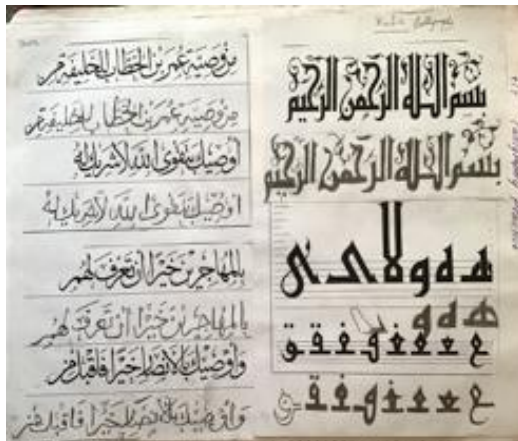 Kufic Calligraphy
بسم الله الرحمن الرحيم
بسم الله الرحمن الرحيم
ه ه و لا ى ى
ه ه و
ع ع غ ف و ف ق ق
ع ع غ ف و ف ق ق
من وصية عمر بن الخطاب للخليفة من
من وصية عمر بن الخطاب للخليفة من
أوصيك بتقوى الله لا شريك له
أوصيك بتقوى الله لا شريك له
بالمهاجرين خيرا أن تعرف لهم
بالمهاجرين خيرا أن تعرف لهم
وأوصيك بالأنصار خيرا فاقبل من
وأوصيك بالأنصار خيرا فاقبل من